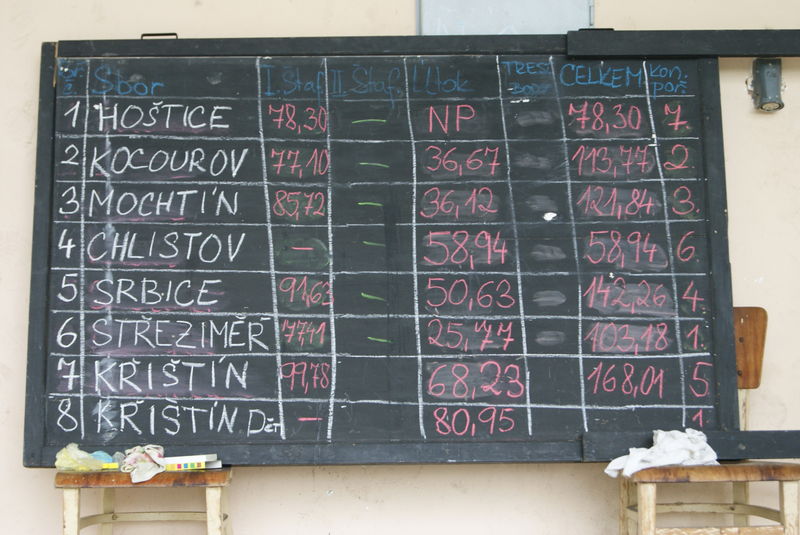 Sbor I. Štaf. II. Štaf. Útok TRES. BODY CELKEM Kon. poř.
1 HOŠTICE 78,30 — NP 78,30 7.
2 KOCOUROV 77,10 — 36,67 113,77 2
3 MOCHTÍN 85,72 — 36,12 121,84 3.
4 CHLISTOV — — 58,94 58,94 6.
5 SRBICE 91,63 — 50,63 142,26 4
6 STŘEZIMĚŘ 77,41 — 25,77 103,18 1.
7 KŘIŠTÍN 99,78 68,23 168,01 5
8 KŘIŠTÍN Dět — 80,95 1